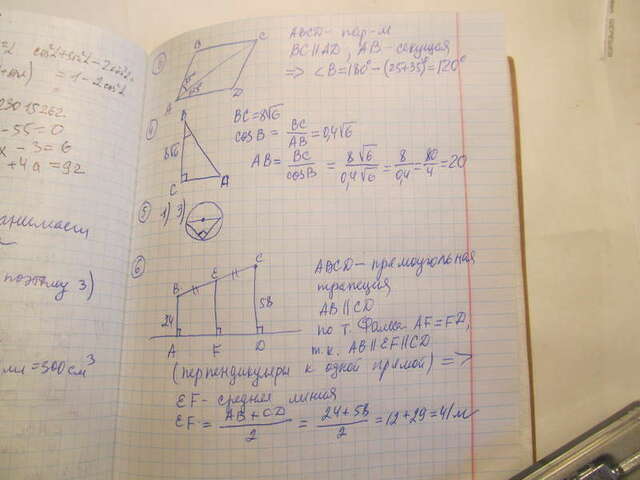 = 1 - 2cos²α
23015262.
- 55 = 0
x - 3 = 6
+ 4a = 92
поэтому 3)
= 300 см³
③ B C
A D
ABCD - пар-м
BC || AD, AB - секущая
=> ∠B = 180° - (25+35)° = 120°
④ B
8√6
C A
BC = 8√6
cos B = BC/AB = 0,4√6
AB = BC/cosB = 8√6/0,4√6 = 8/0,4 = 80/4 = 20
⑤ 1) 3)
⑥ B E C
24 58
A F D
ABCD - прямоугольная
трапеция
AB || CD
по т. Фалеса AF = FD,
т.к. AB || EF || CD
(перпендикуляры к одной прямой) =>
EF - средняя линия
EF = AB + CD/2 = 24+58/2 = 12+29 = 41 м